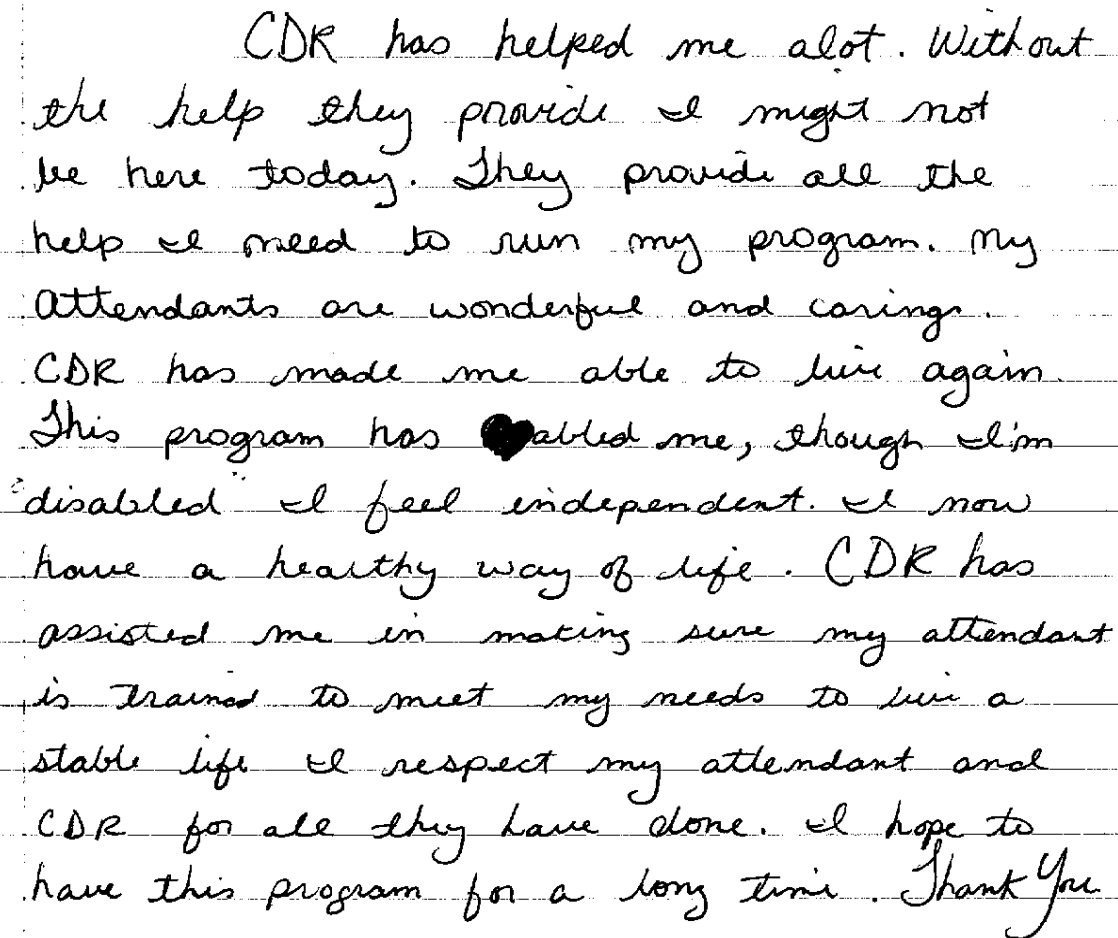 CDR has helped me alot. Without
the help they provide I might not
be here today. They provide all the
help I need to run my program. My
attendants are wonderful and caring.
CDR has made me able to live again.
This program has abled me, though I'm
disabled I feel independent. I now
have a healthy way of life. CDR has
assisted me in making sure my attendant
is trained to meet my needs to live a
stable life I respect my attendant and
CDR for all they have done. I hope to
have this program for a long time. Thank You